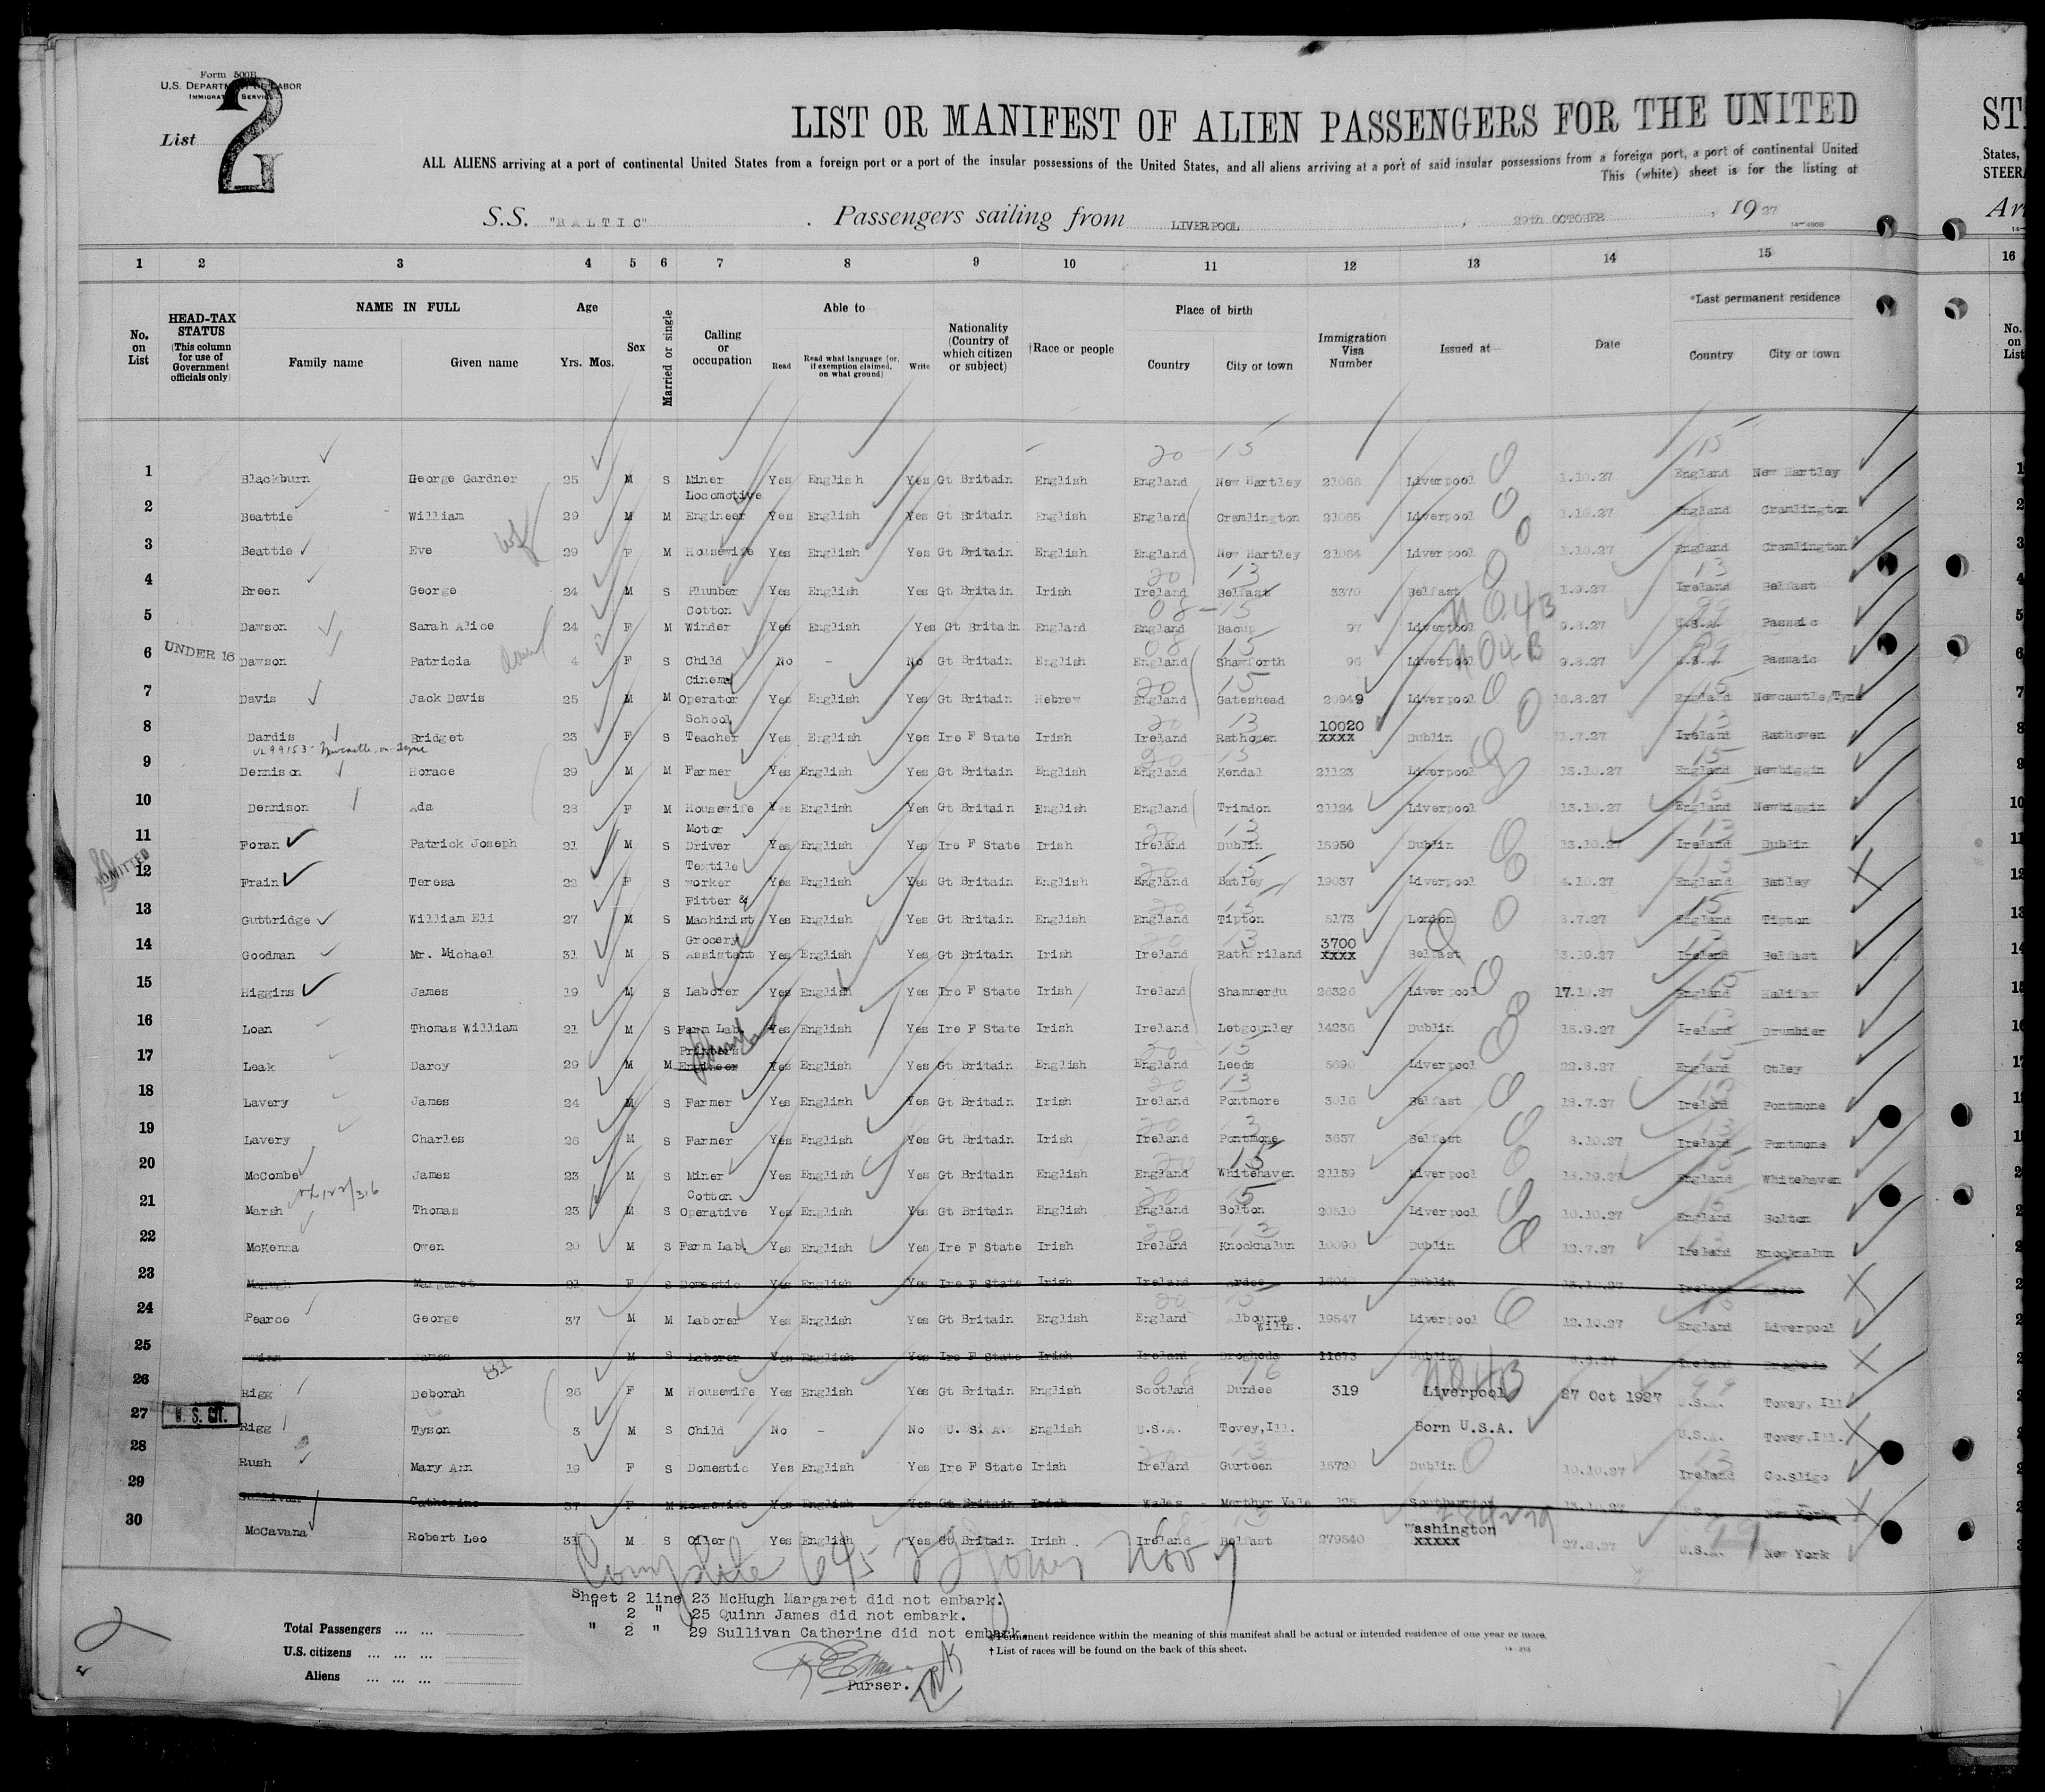 Form 500B
U.S. DEPARTMENT OF LABOR
IMMIGRATION SERVICE
List 2
LIST OR MANIFEST OF ALIEN PASSENGERS FOR THE UNITED
ALL ALIENS arriving at a port of continental United States from a foreign port or a port of the insular possessions of the United States, and all aliens arriving at a port of said insular possessions from a foreign port, a port of continental United
This (white) sheet is for the listing of
S.S. "BALTIC" . Passengers sailing from LIVERPOOL , 29th OCTOBER , 1927
1 2 3 4 5 6 7 8 9 10 11 12 13 14 15
No. on List
HEAD-TAX STATUS (This column for use of Government officials only)
NAME IN FULL Family name Given name
Age Yrs. Mos.
Sex
Married or single
Calling or occupation
Able to Read Read what language [or, if exemption claimed, on what ground] Write
Nationality (Country of which citizen or subject)
†Race or people
Place of birth Country City or town
Immigration Visa Number
Issued at
Date
*Last permanent residence Country City or town
1 Blackburn George Gardner 25 M S Miner Yes English Yes Gt Britain English England New Hartley 21066 Liverpool 1.10.27 England New Hartley
2 Beattie William 29 M M Locomotive Engineer Yes English Yes Gt Britain English England Cramlington 21065 Liverpool 1.10.27 England Cramlington
3 Beattie Eve 29 F M Housewife Yes English Yes Gt Britain English England New Hartley 21064 Liverpool 1.10.27 England Cramlington
4 Breen George 24 M S Plumber Yes English Yes Gt Britain Irish Ireland Belfast 3370 Belfast 1.9.27 Ireland Belfast
5 Dawson Sarah Alice 24 F M Cotton Winder Yes English Yes Gt Britain England England Bacup 97 Liverpool 9.8.27 U.S.A. Passaic
6 UNDER 16 Dawson Patricia 4 F S Child No - No Gt Britain English England Shawforth 96 Liverpool 9.8.27 U.S.A. Passaic
7 Davis Jack Davis 25 M M Cinema Operator Yes English Yes Gt Britain Hebrew England Gateshead 20949 Liverpool 16.8.27 England Newcastle/Tyne
8 Dardis Bridget 23 F S School Teacher Yes English Yes Ire F State Irish Ireland Rathowen 10020 XXXX Dublin 1.7.27 Ireland Rathowen
9 Dennison Horace 29 M M Farmer Yes English Yes Gt Britain English England Kendal 21123 Liverpool 13.10.27 England Newbiggin
10 Dennison Ada 28 F M Housewife Yes English Yes Gt Britain English England Trimdon 21124 Liverpool 13.10.27 England Newbiggin
11 Foran Patrick Joseph 21 M S Motor Driver Yes English Yes Ire F State Irish Ireland Dublin 15950 Dublin 13.10.27 Ireland Dublin
ADMITTED
12 Frain Teresa 28 F S Textile worker Yes English Yes Gt Britain English England Batley 19037 Liverpool 4.10.27 England Batley
13 Guttridge William Eli 27 M S Fitter & Machinist Yes English Yes Gt Britain English England Tipton 5173 London 8.7.27 England Tipton
14 Goodman Mr. Michael 31 M S Grocery Assistant Yes English Yes Gt Britain Irish Ireland Rathfriland 3700 XXXX Belfast 3.10.27 Ireland Belfast
15 Higgins James 19 M S Laborer Yes English Yes Ire F State Irish Ireland Shammerdu 26326 Liverpool 17.10.27 England Halifax
16 Loan Thomas William 21 M S Farm Lab. Yes English Yes Ire F State Irish Ireland Letgounley 14236 Dublin 15.9.27 Ireland Drumbier
17 Leak Darcy 29 M M Printers Engineer Yes English Yes Gt Britain English England Leeds 5690 Liverpool 22.8.27 England Otley
18 Lavery James 24 M S Farmer Yes English Yes Gt Britain Irish Ireland Pontmore 3016 Belfast 18.7.27 Ireland Pontmone
19 Lavery Charles 26 M S Farmer Yes English Yes Gt Britain Irish Ireland Pontmone 3637 Belfast 8.10.27 Ireland Pontmone
20 McCombe James 23 M S Miner Yes English Yes Gt Britain English England Whitehaven 21139 Liverpool 18.10.27 England Whitehaven
21 Marsh Thomas 23 M S Cotton Operative Yes English Yes Gt Britain English England Bolton 20510 Liverpool 10.10.27 England Bolton
22 McKenna Owen 20 M S Farm Lab. Yes English Yes Ire F State Irish Ireland Knocknalun 10090 Dublin 12.7.27 Ireland Knocknalun
23 McHugh Margaret F S Domestic Yes English Yes Ire F State Irish Ireland Ardee Dublin 13.10.27 Ireland Ardee
24 Pearce George 37 M M Laborer Yes English Yes Gt Britain English England Albourne Wilts. 19547 Liverpool 12.10.27 England Liverpool
25 Quinn James M S Laborer Yes English Yes Ire F State Irish Ireland Drogheda 11673 Dublin Ireland Drogheda
26 Rigg Deborah 26 F M Housewife Yes English Yes Gt Britain English Scotland Dundee 319 Liverpool 27 Oct 1927 U.S.A. Tovey, Ill
27 U. S. CIT. Rigg Tyson 3 M S Child No - No U.S.A. English U.S.A. Tovey,Ill. Born U.S.A. U.S.A. Tovey,Ill.
28 Rush Mary Ann 19 F S Domestic Yes English Yes Ire F State Irish Ireland Gurteen 15720 Dublin 10.10.27 Ireland Co.Sligo
29 Sullivan Catherine 37 F M Housewife Yes English Yes Gt Britain Irish Wales Merthyr Vale 125 Southampton 13.10.27 U.S.A. New York
30 McCavana Robert Leo 31 M S Oiler Yes English Yes Gt Britain Irish Ireland Belfast 279540 Washington XXXXX 27.8.27 U.S.A. New York
Complete 645 Nov 7
Sheet 2 line 23 McHugh Margaret did not embark.
" 2 " 25 Quinn James did not embark.
" 2 " 29 Sullivan Catherine did not embark.
Purser.
Total Passengers ... ...
U.S. citizens ... ... ...
Aliens ... ... ...
* Permanent residence within the meaning of this manifest shall be actual or intended residence of one year or more.
† List of races will be found on the back of this sheet.